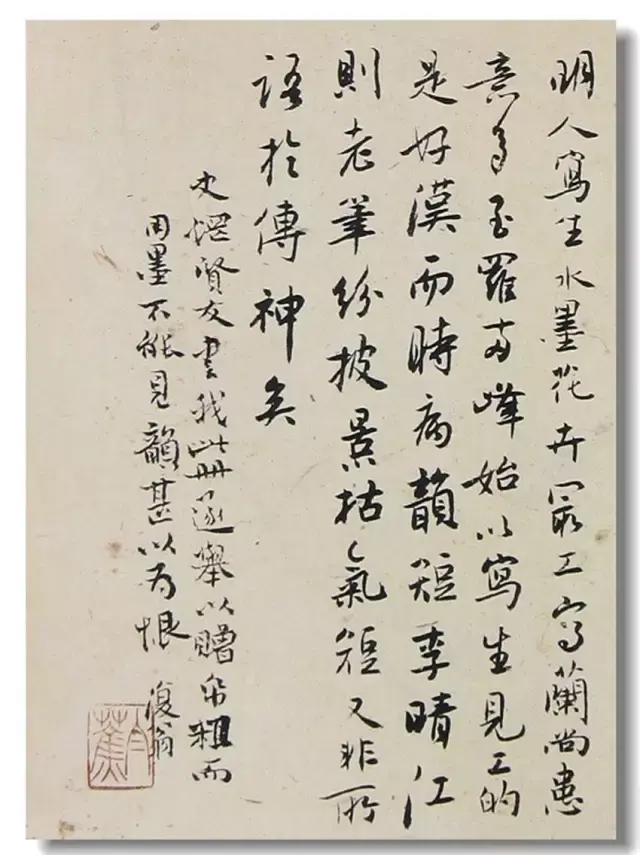 明人寫生水墨花卉最工寫蘭尚患
意多至羅兩峰始以寫生見工的
是好漢而時病韻短李晴江
則老筆紛披景枯氣短又非所
語於傳神矣
賢友喜我此冊遂舉以贈帋粗而
用墨不能見韻甚以為恨 復翁
白蕉